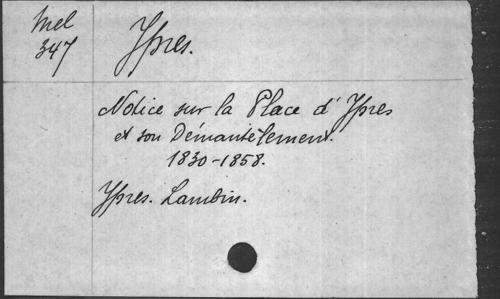 Mel
347
Ypres.
Notice sur la Place d'Ypres
et son Démantèlement.
1830-1858.
Ypres. Lambin.